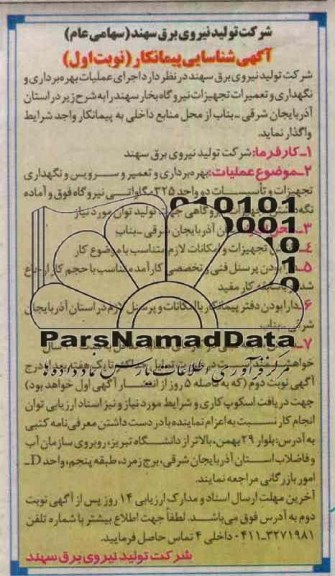 شرکت تولید نیروی برق سهند (سهامی عام)
آگهی شناسایی پیمانکار (نوبت اول)
شرکت تولید نیروی برق سهند در نظر دارد اجرای عملیات بهره برداری و
نگهداری و تعمیرات تجهیزات نیروگاه بخار سهند را به شرح زیر در استان
آذربایجان شرقی - بناب از محل منابع داخلی به پیمانکار واجد شرایط
واگذار نماید.
۱- کارفرما: شرکت تولید نیروی برق سهند
۲- موضوع عملیات: بهره برداری و تعمیر و سرویس و نگهداری
تجهیزات و تاسیسات دو واحد ۳۲۵ مگاواتی نیروگاه فوق و آماده
جهت تولید توان مورد نیاز
۳- آذربایجان شرقی - بناب
۴- تجهیزات و امکانات لازم متناسب با موضوع کار
۵- بودن پرسنل فنی و تخصصی کارآمد متناسب با حجم کار
سابقه کار مفید
۶- دارا بودن دفتر پیمانکار با امکانات و پرسنل لازم در استان آذربایجان
010101
0001
ParsNamadData
۷-
آگهی نوبت دوم (که به فاصله ۵ روز از انتشار آگهی اول خواهد بود)
جهت دریافت اسکوپ کاری و شرایط مورد نیاز و نیز اسناد ارزیابی توان
انجام کار نسبت به اعزام نماینده با در دست داشتن معرفی نامه کتبی
به آدرس: بلوار ۲۹ بهمن، بالاتر از دانشگاه تبریز، روبروی سازمان آب
و فاضلاب استان آذربایجان شرقی، برج زمرد، طبقه پنجم، واحد D-
امور بازرگانی مراجعه نمایند.
آخرین مهلت ارسال اسناد و مدارک ارزیابی ۱۴ روز پس از آگهی نوبت
دوم به آدرس فوق می باشد. لطفا جهت اطلاع بیشتر با شماره تلفن
۳۲۷۱۹۸۱-۰۴۱۱ داخلی ۴ تماس حاصل فرمایید.
شرکت تولید نیروی برق سهند